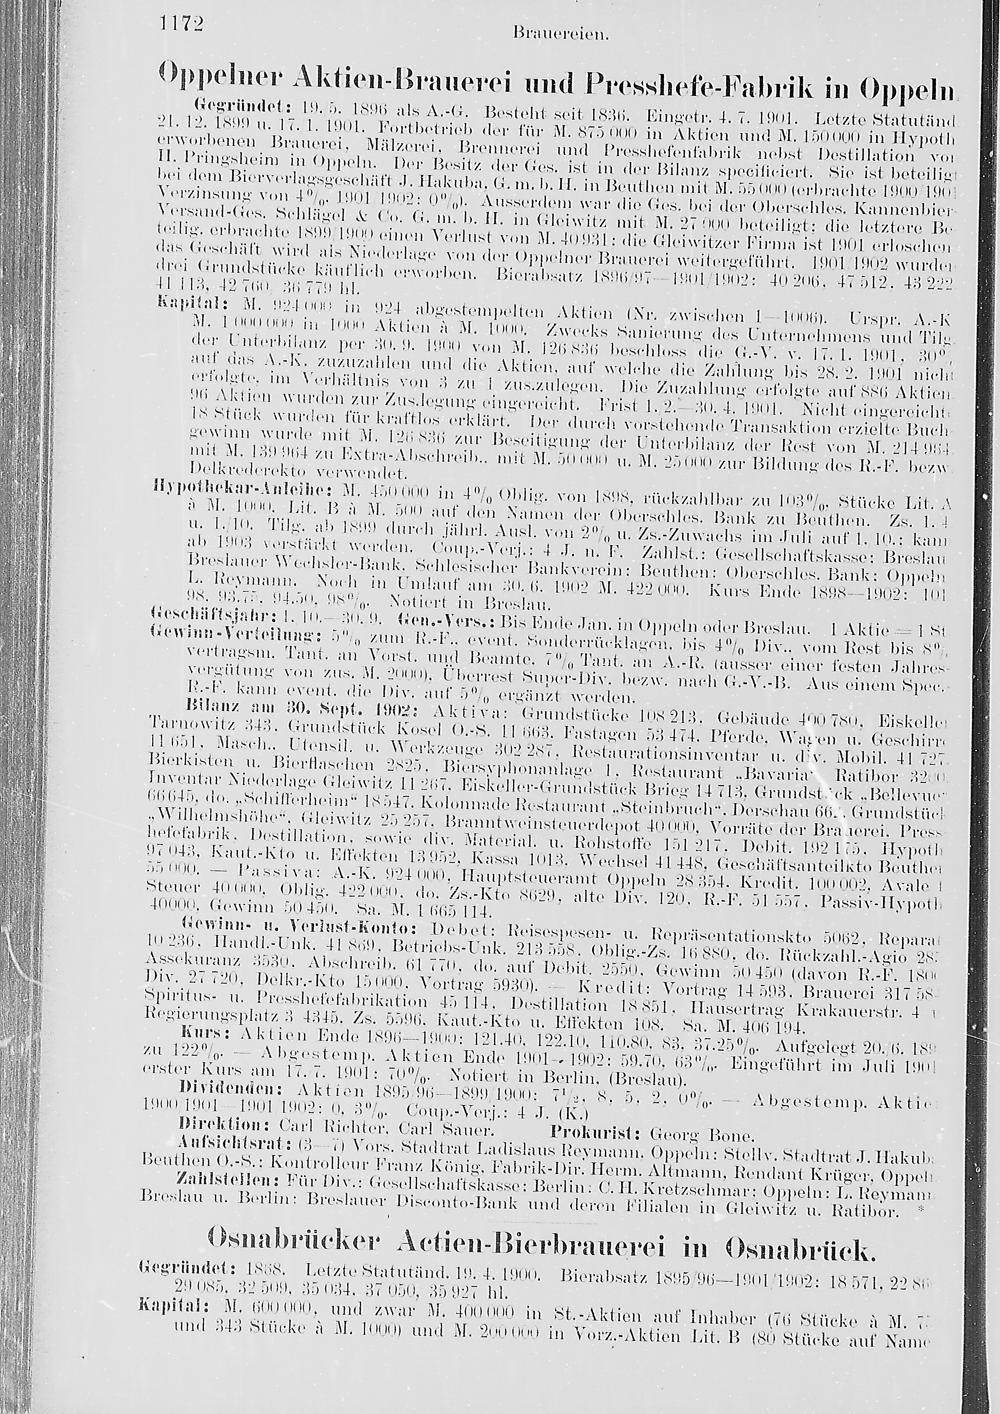 1172
Brauereien.
Oppelner Aktien-Brauerei und Presshefe-Fabrik in Oppeln
Gegründet: 19. 5. 1896 als A.-G. Besteht seit 1836. Eingetr. 4. 7. 1901. Letzte Statutänd
21. 12. 1899 u. 17. 1. 1901. Fortbetrieb der für M. 875 000 in Aktien und M. 150 000 in Hypoth
erworbenen Brauerei, Mälzerei, Brennerei und Presshefenfabrik nebst Destillation vo
H. Pringsheim in Oppeln. Der Besitz der Ges. ist in der Bilanz specificiert. Sie ist beteilig
bei dem Bierverlagsgeschäft J. Hakuba, G. m. b. H. in Beuthen mit M. 55 000 (erbrachte 1900/190
Verzinsung von 4%, 1901/1902: 0%). Ausserdem war die Ges. bei der Oberschles. Kannenbier-
Versand-Ges. Schlägel & Co. G. m. b. H. in Gleiwitz mit M. 27 000 beteiligt; die letztere Be-
teilig. erbrachte 1899/1900 einen Verlust von M. 40 931; die Gleiwitzer Firma ist 1901 erloschen
das Geschäft wird als Niederlage von der Oppelner Brauerei weitergeführt. 1901/1902 wurde
drei Grundstücke käuflich erworben. Bierabsatz 1896/97—1901/1902: 40 206, 47 512, 43 222
41 113, 42 760, 36 779 hl.
Kapital: M. 924 000 in 924 abgestempelten Aktien (Nr. zwischen 1—1006). Urspr. A.-K
M. 1 000 000 in 1000 Aktien à M. 1000. Zwecks Sanierung des Unternehmens und Tilg
der Unterbilanz per 30. 9. 1900 von M. 126 836 beschloss die G.-V. v. 17. 1. 1901, 30%
auf das A.-K. zuzuzahlen und die Aktien, auf welche die Zahlung bis 28. 2. 1901 nicht
erfolgte, im Verhältnis von 3 zu 1 zus.zulegen. Die Zuzahlung erfolgte auf 886 Aktien
96 Aktien wurden zur Zus.legung eingereicht. Frist 1. 2.—30. 4. 1901. Nicht eingereicht
18 Stück wurden für kraftlos erklärt. Der durch vorstehende Transaktion erzielte Buch-
gewinn wurde mit M. 126 836 zur Beseitigung der Unterbilanz der Rest von M. 214 964
mit M. 139 964 zu Extra-Abschreib., mit M. 50 000 u. M. 25 000 zur Bildung des R.-F. bezw
Delkrederekto verwendet.
Hypothekar-Anleihe: M. 450 000 in 4% Oblig. von 1898, rückzahlbar zu 103%, Stücke Lit. A
à M. 1000, Lit. B à M. 500 auf den Namen der Oberschles. Bank zu Beuthen. Zs. 1. 4
u. 1./10. Tilg. ab 1899 durch jährl. Ausl. von 2% u. Zs.-Zuwachs im Juli auf 1. 10.; kann
ab 1903 verstärkt werden. Coup.-Verj.: 4 J. n. F. Zahlst.: Gesellschaftskasse; Breslau
Breslauer Wechsler-Bank, Schlesischer Bankverein; Beuthen: Oberschles. Bank; Oppeln
L. Reymann. Noch in Umlauf am 30. 6. 1902 M. 422 000. Kurs Ende 1898—1902: 101
98, 93.75, 94.50, 98%. Notiert in Breslau.
Geschäftsjahr: 1. 10.—30. 9. Gen.-Vers.: Bis Ende Jan. in Oppeln oder Breslau. 1 Aktie = 1 St
Gewinn-Verteilung: 5% zum R.-F., event. Sonderrücklagen, bis 4% Div., vom Rest bis 8%
vertragsm. Tant. an Vorst. und Beamte, 7% Tant. an A.-R. (ausser einer festen Jahres-
vergütung von zus. M. 2000), Überrest Super-Div. bezw. nach G.-V.-B. Aus einem Spec.-
R.-F. kann event. die Div. auf 5% ergänzt werden.
Bilanz am 30. Sept. 1902: Aktiva: Grundstücke 108 213, Gebäude 400 780, Eiskelle
Tarnowitz 343, Grundstück Kosel O.-S. 11 663, Fastagen 53 474, Pferde, Wagen u. Geschirr
11 651, Masch., Utensil. u. Werkzeuge 302 287, Restaurationsinventar u. div. Mobil. 41 727
Bierkisten u. Bierflaschen 2825, Biersyphonanlage 1, Restaurant „Bavaria“ Ratibor 3200
Inventar Niederlage Gleiwitz 11 267, Eiskeller-Grundstück Brieg 14 713, Grundstück „Bellevue“
66 645, do. „Schifferheim“ 18 547, Kolonnade Restaurant „Steinbruch“, Derschau 662, Grundstück
„Wilhelmshöhe“, Gleiwitz 25 257, Branntweinsteuerdepot 40 000, Vorräte der Brauerei, Press-
hefefabrik, Destillation, sowie div. Material. u. Rohstoffe 151 217, Debit. 192 175, Hypoth
97 043, Kaut.-Kto u. Effekten 13 952, Kassa 1013, Wechsel 41 448, Geschäftsanteilkto Beuthe
55 000. — Passiva: A.-K. 924 000, Hauptsteueramt Oppeln 28 354, Kredit. 100 002, Avale f
Steuer 40 000, Oblig. 422 000, do. Zs.-Kto 8629, alte Div. 120, R.-F. 51 557, Passiv-Hypoth
40 000, Gewinn 50 450. Sa. M. 1 665 114.
Gewinn- u. Verlust-Konto: Debet: Reisespesen- u. Repräsentationskto 5062, Repara
10 236, Handl.-Unk. 41 869, Betriebs-Unk. 213 558, Oblig.-Zs. 16 880, do. Rückzahl.-Agio 28
Assekuranz 3530, Abschreib. 61 770, do. auf Debit. 2550, Gewinn 50 450 (davon R.-F. 180
Div. 27 720, Delkr.-Kto 15 000, Vortrag 5930). — Kredit: Vortrag 14 593, Brauerei 317 58
Spiritus- u. Presshefefabrikation 45 114, Destillation 18 851, Hausertrag Krakauerstr. 4
Regierungsplatz 3 4345, Zs. 5596, Kaut.-Kto u. Effekten 108. Sa. M. 406 194.
Kurs: Aktien Ende 1896—1900: 121.40, 122.10, 110.80, 83, 37.25%. Aufgelegt 20. 6. 189
zu 122%. — Abgestemp. Aktien Ende 1901—1902: 59.70, 63%. Eingeführt im Juli 1901
erster Kurs am 17. 7. 1901: 70%. Notiert in Berlin, (Breslau).
Dividenden: Aktien 1895/96—1899/1900: 7½, 8, 5, 2, 0%. — Abgestemp. Aktie
1900/1901—1901/1902: 0, 3%. Coup.-Verj.: 4 J. (K.)
Direktion: Carl Richter, Carl Sauer. Prokurist: Georg Bone.
Aufsichtsrat: (3—7) Vors. Stadtrat Ladislaus Reymann, Oppeln; Stellv. Stadtrat J. Hakub
Beuthen O.-S.; Kontrolleur Franz König, Fabrik-Dir. Herm. Altmann, Rendant Krüger, Oppel
Zahlstellen: Für Div.: Gesellschaftskasse; Berlin: C. H. Kretzschmar; Oppeln: L. Reyman
Breslau u. Berlin: Breslauer Disconto-Bank und deren Filialen in Gleiwitz u. Ratibor. *
Osnabrücker Actien-Bierbrauerei in Osnabrück.
Gegründet: 1868. Letzte Statutänd. 19. 4. 1900. Bierabsatz 1895/96—1901/1902: 18 571, 22 8
29 085, 32 509, 35 034, 37 050, 35 927 hl.
Kapital: M. 600 000, und zwar M. 400 000 in St.-Aktien auf Inhaber (76 Stücke à M. 7
und 343 Stücke à M. 1000) und M. 200 000 in Vorz.-Aktien Lit. B (80 Stücke auf Name